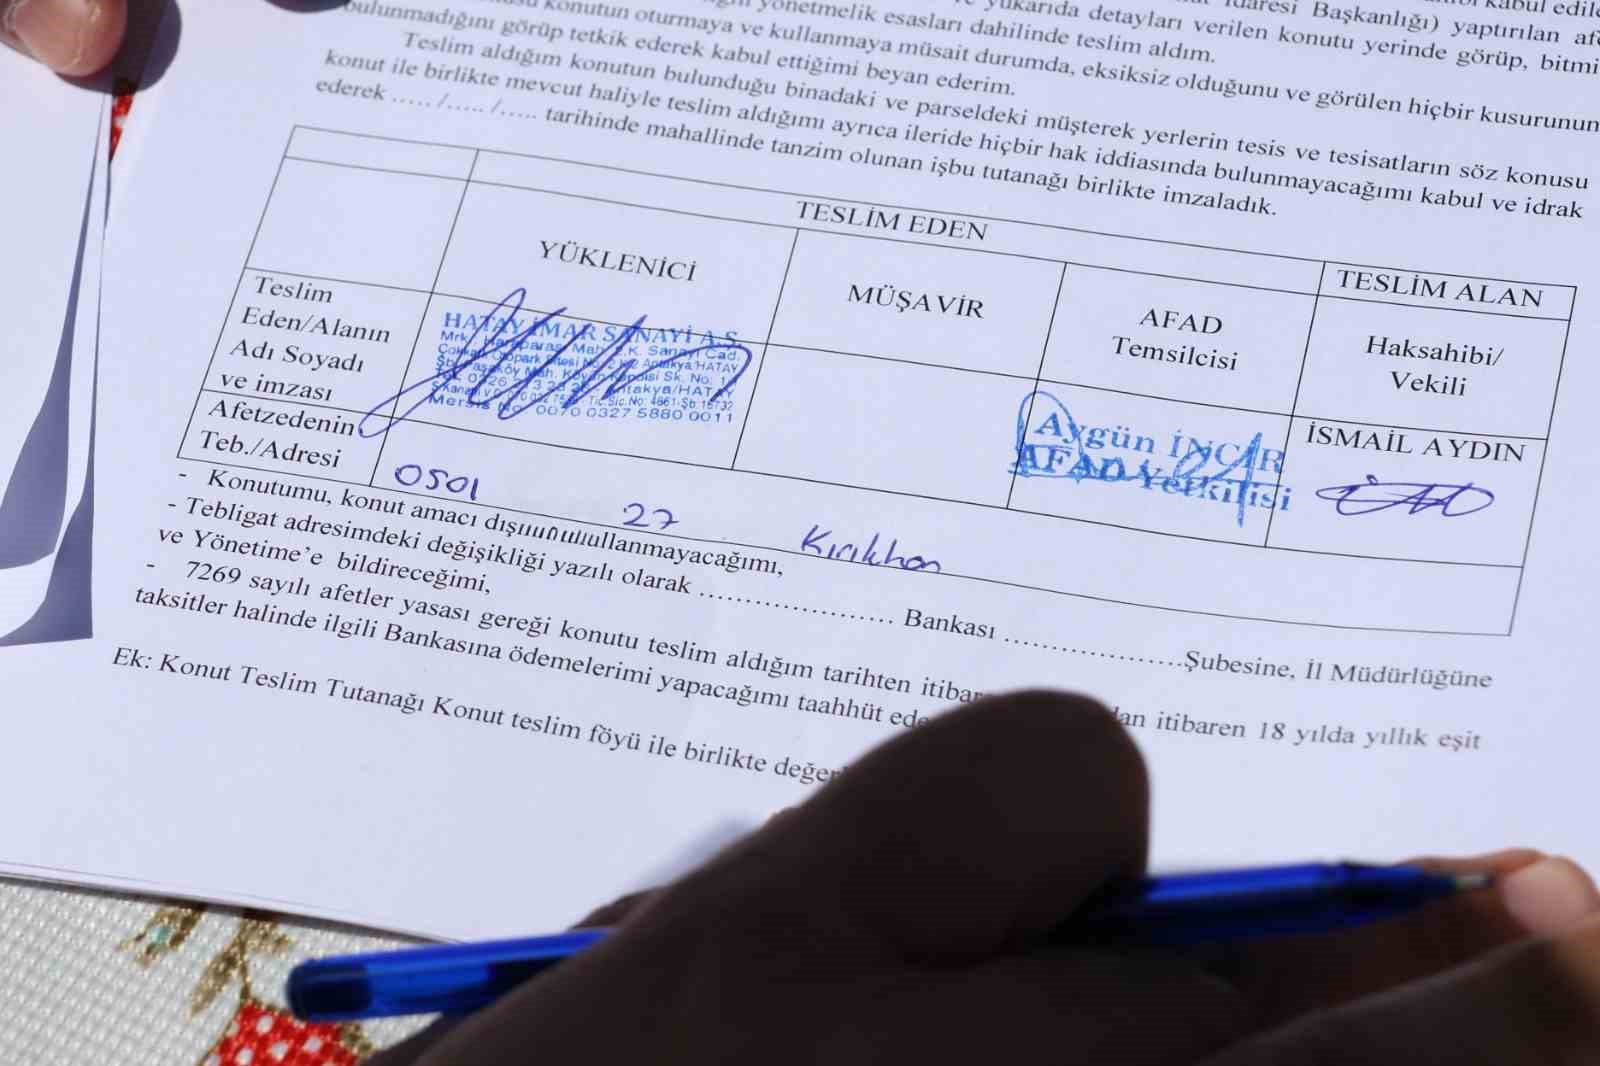 kabul edile
yönetmelik esasları dahilinde teslim aldım. İdaresi Başkanlığı) yaptırılan afe
konutun oturmaya ve kullanmaya müsait durumda, eksiksiz olduğunu ve görülen hiçbir kusurunun
yukarıda detayları verilen konutu yerinde görüp, bitmi
bulunmadığını görüp tetkik ederek kabul ettiğimi beyan ederim.
Teslim aldığım konutun bulunduğu binadaki ve parseldeki müşterek yerlerin tesis ve tesisatların söz konusu
konut ile birlikte mevcut haliyle teslim aldığımı ayrıca ileride hiçbir hak iddiasında bulunmayacağımı kabul ve idrak
ederek ..... /..... /..... tarihinde mahallinde tanzim olunan işbu tutanağı birlikte imzaladık.
TESLİM EDEN
TESLİM ALAN
YÜKLENİCİ
MÜŞAVİR
AFAD
Temsilcisi
Haksahibi/
Vekili
Teslim
Eden/Alanın
Adı Soyadı
ve imzası
HATAY İMAR SANAYİ A.Ş.
Mersis No: 0070 0327 5880 0011
Aygün İNCİR
AFAD Yetkilisi
İSMAİL AYDIN
Afetzedenin
Teb./Adresi
0501 27 Kırıkhan
- Konutumu, konut amacı dışında kullanmayacağımı,
- Tebligat adresimdeki değişikliği yazılı olarak .................... Bankası ....................Şubesine, İl Müdürlüğüne
ve Yönetime'e bildireceğimi,
- 7269 sayılı afetler yasası gereği konutu teslim aldığım tarihten itibaren 18 yılda yıllık eşit
taksitler halinde ilgili Bankasına ödemelerimi yapacağımı taahhüt ede
Ek: Konut Teslim Tutanağı Konut teslim föyü ile birlikte değer